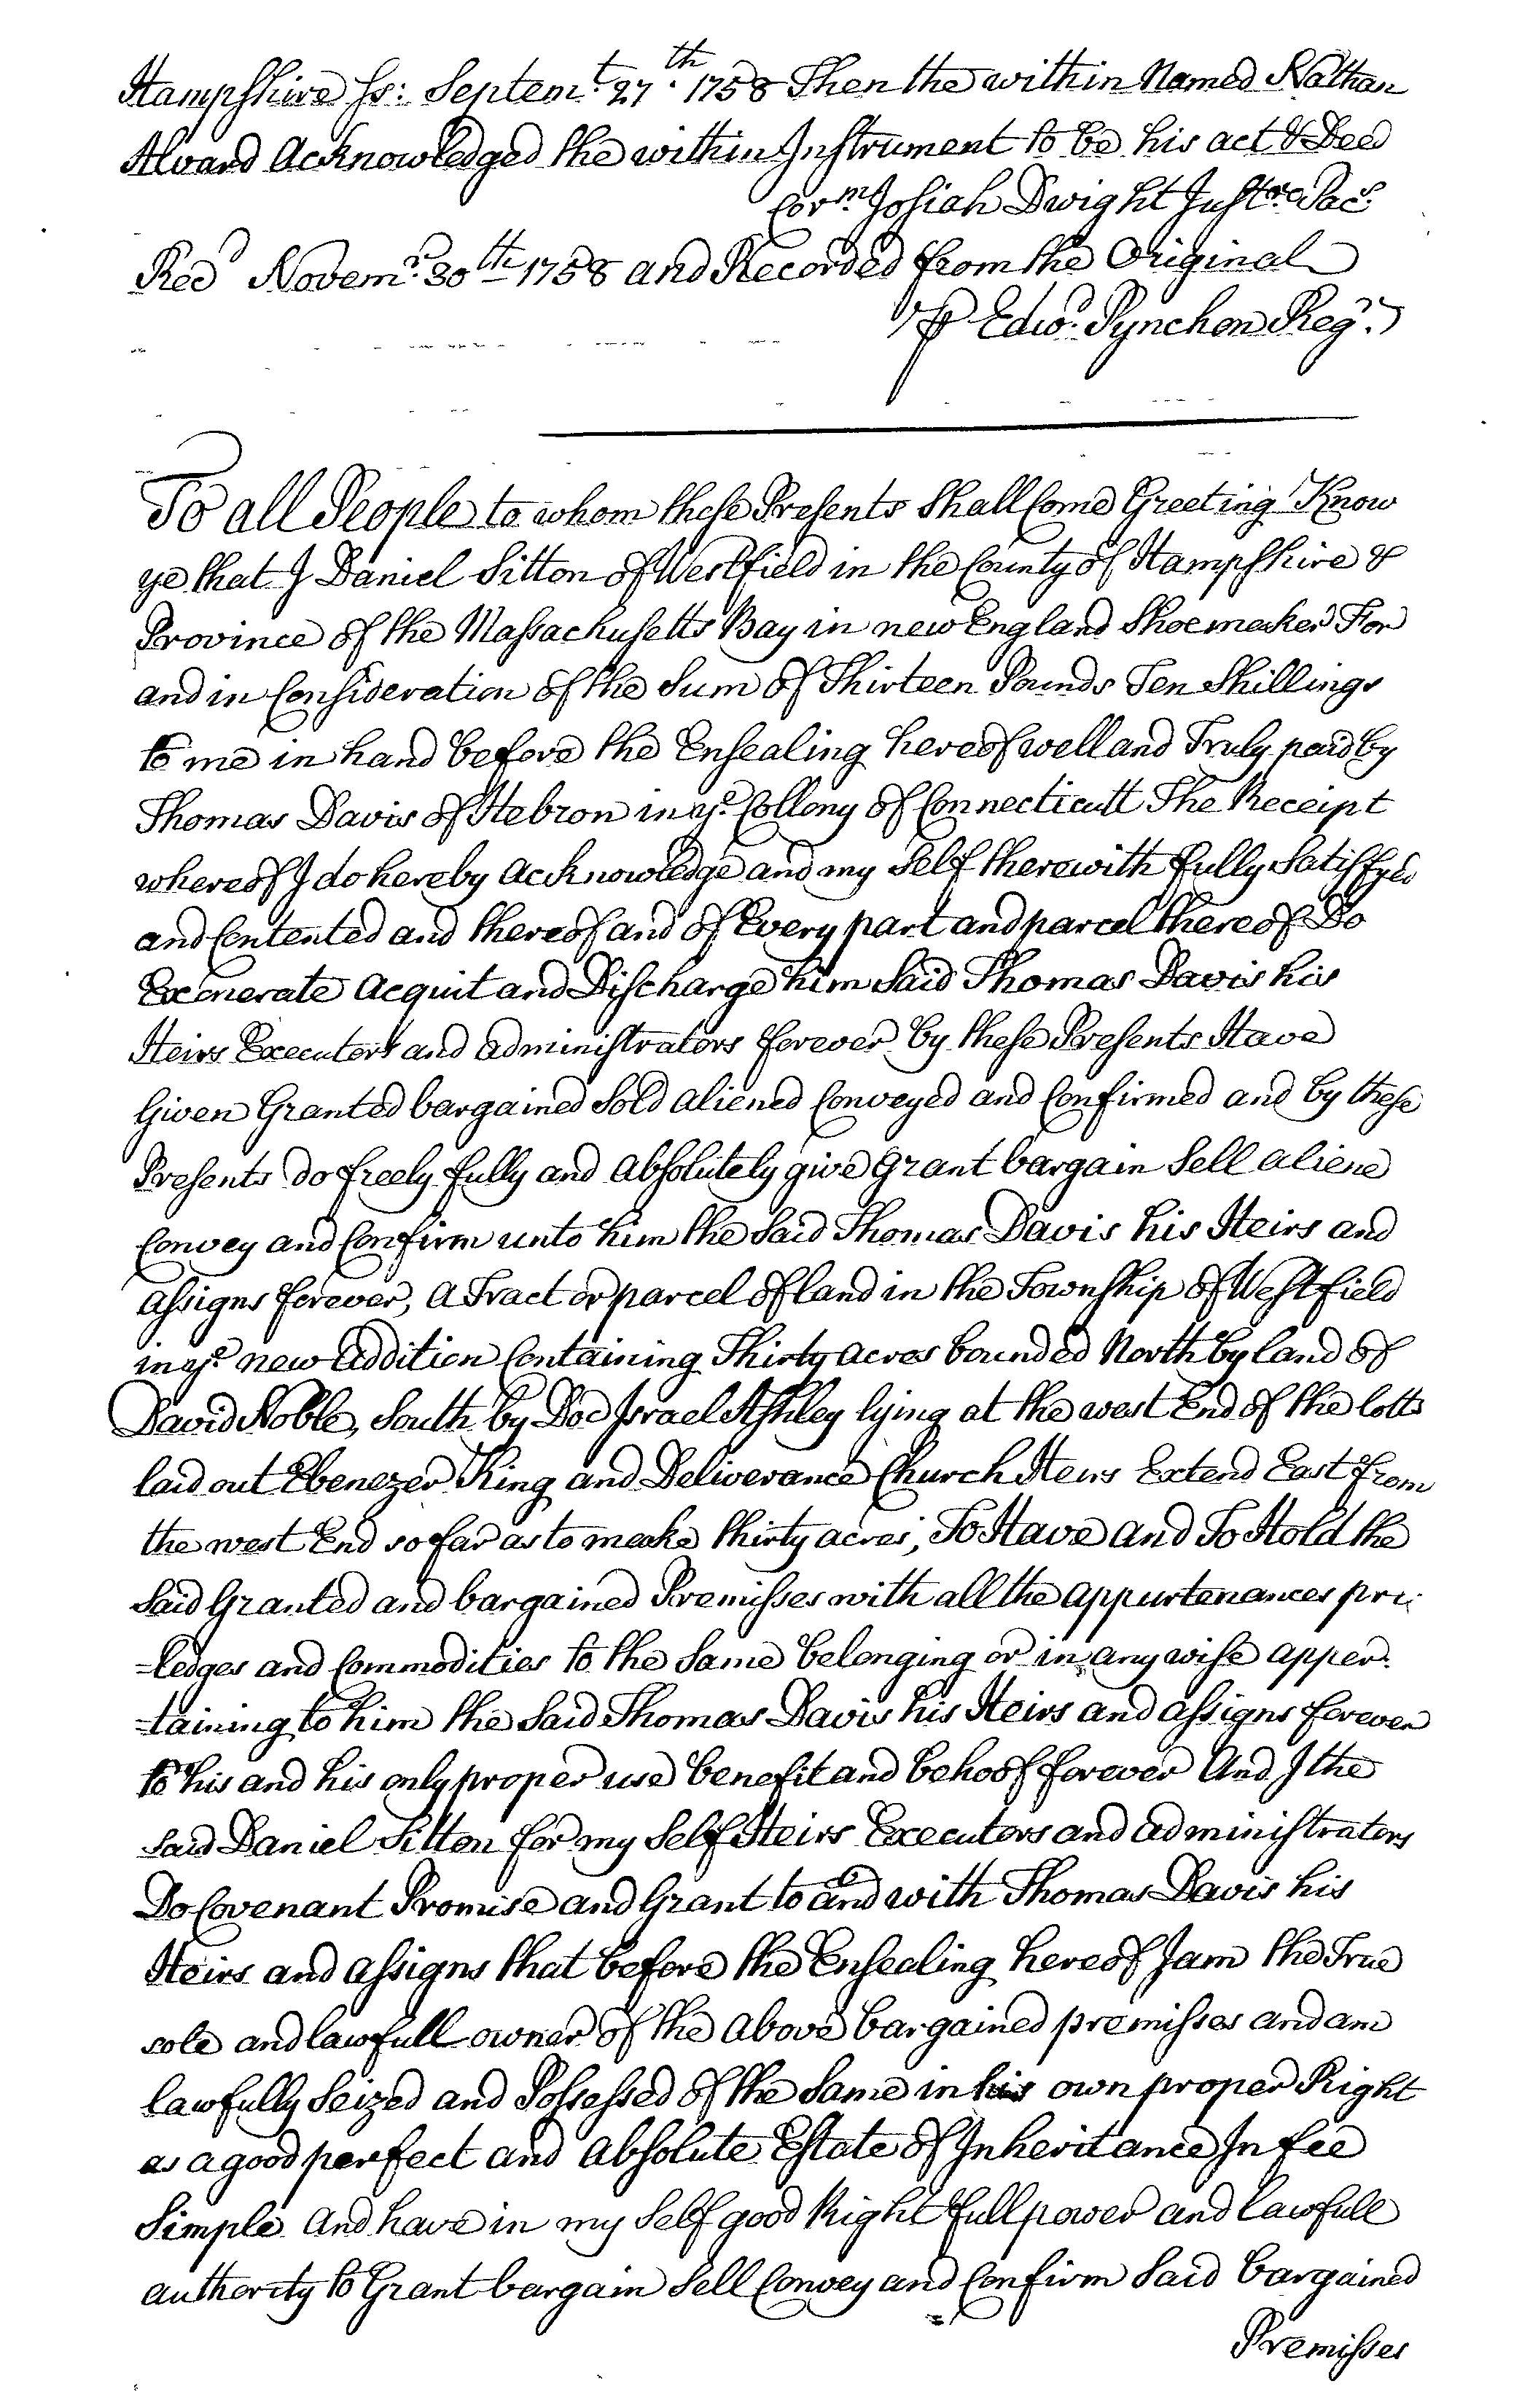 Hampshire ss: Septemr 27th 1758 Then the within Named Nathan
Alvard Acknowledged the within Instrument to be his act & Deed
Corm Josiah Dwight Justce Pacs
Recd Novemr 30th 1758 and Recorded from the Original
P Edwd Pynchon Regr
To all People to whom these Presents Shall Come Greeting Know
ye that I Daniel Sitton of Westfield in the County of Hampshire &
Province of the Massachusetts Bay in new England Shoemaker For
and in Consideration of the Sum of Thirteen Pounds Ten Shillings
to me in hand before the Ensealing hereof well and Truly paid by
Thomas Davis of Hebron in ye Collony of Connecticutt The Receipt
whereof I do hereby Acknowledge and my Self therewith fully Satisfyed
and Contented and thereof and of Every part and parcel thereof Do
Exonerate Acquit and Discharge him Said Thomas Davis his
Heirs Executors and administrators forever by these Presents Have
Given Granted bargained Sold aliened Conveyed and Confirmed and by these
Presents do freely fully and absolutely give grant bargain Sell aliene
Convey and Confirm unto him the Said Thomas Davis his Heirs and
assigns forever, a Tract or parcel of land in the Township of Westfield
in ye new addition Containing Thirty acres bounded North by land of
David Noble, South by Doc Israel Ashley lying at the west End of the lotts
laid out Ebenezer King and Deliverance Church Heirs Extend East from
the west End so far as to make thirty acres, To Have and To Hold the
Said Granted and bargained Premisses with all the appurtenances pri
=ledges and Commodities to the Same belonging or in any wise apper-
=taining to him the Said Thomas Davis his Heirs and assigns forever
to his and his only proper use benefit and behoof forever And I the
said Daniel Sitton for my Self Heirs Executors and administrators
Do Covenant Promise and Grant to and with Thomas Davis his
Heirs and assigns that before the Ensealing hereof I am the True
sole and lawfull owner of the above bargained premisses and am
lawfully Seized and Possessed of the Same in his own proper Right
as a good perfect and absolute Estate of Inheritance In fee
Simple And have in my Self good Right full power and lawfull
authority to Grant bargain Sell Convey and Confirm Said bargained
Premisses